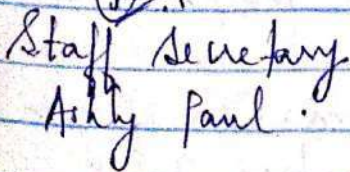 Staff Secretary
Ashly Paul.